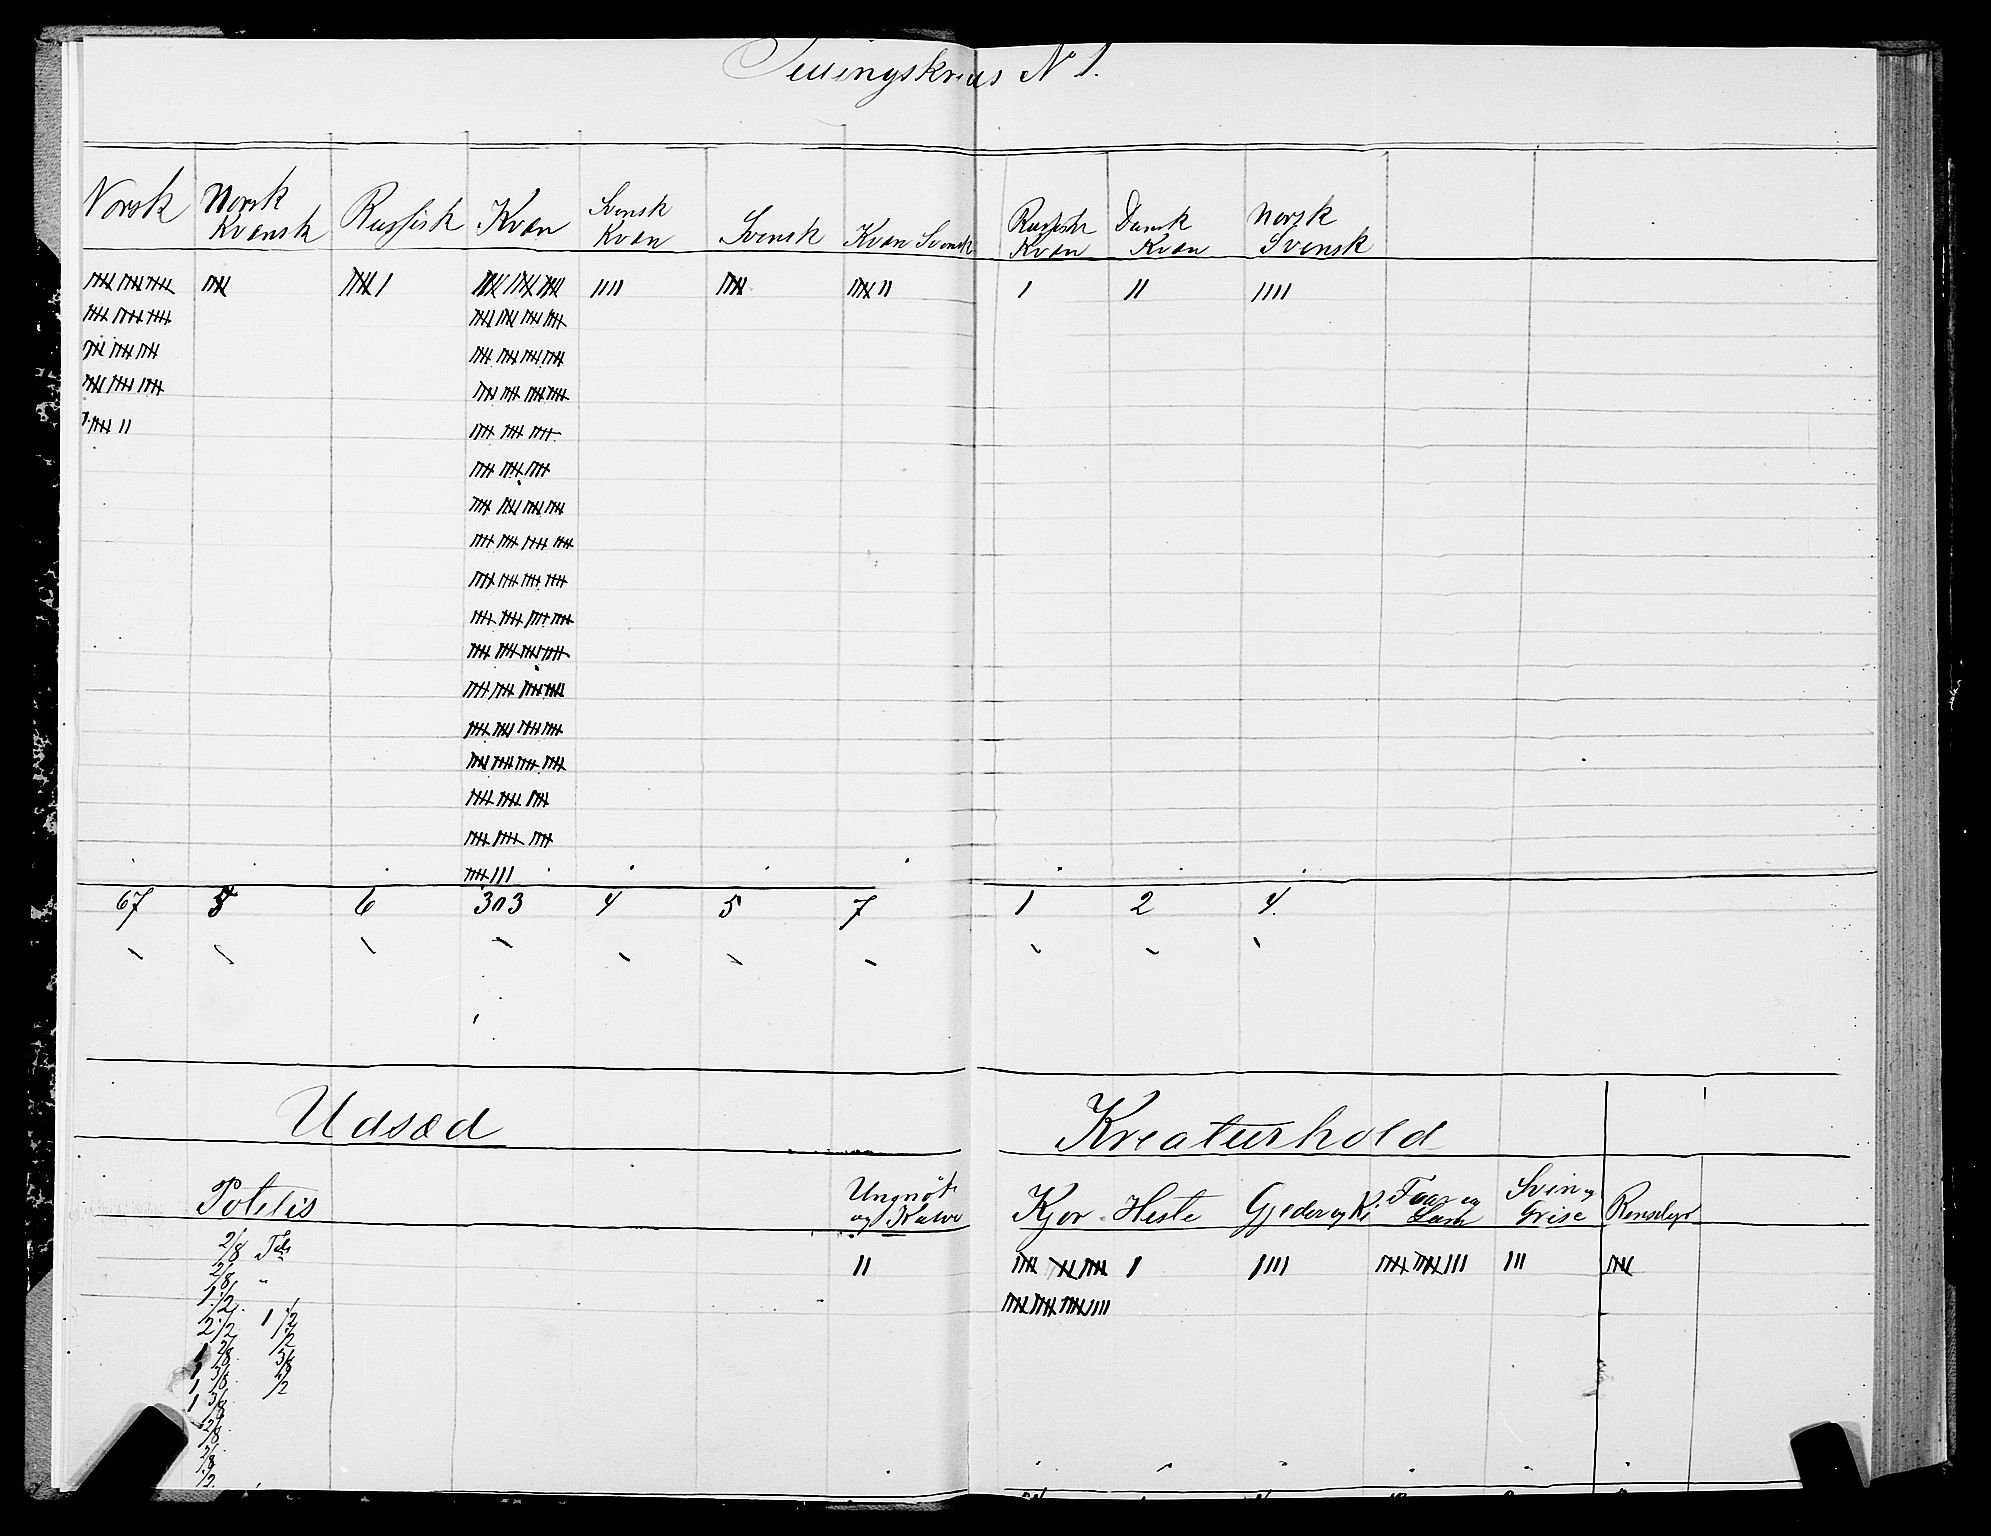 Tellingskreds No 1.
Norsk | Norsk Kvænsk | Russisk | Kvæn | Svensk Kvæn | Svensk | Kvæn Svensk | Russisk Kvæn | Dansk Kvæn | Norsk Svensk
67 | 5 | 6 | 303 | 4 | 5 | 7 | 1 | 2 | 4.
Udsæd | Kreaturhold
Potetis | Ungnöt og Kalve | Kjør | Heste | Gjeder og Ki | Faar og Lam | Svin og Grise | Rensdyr
2/8 Td
2/8 "
1 1/2
2 1/2 1 1/2
1 2/8 1/2
1 3/8 3/8
1 3/8 1/2
2/8
2/8
1/2